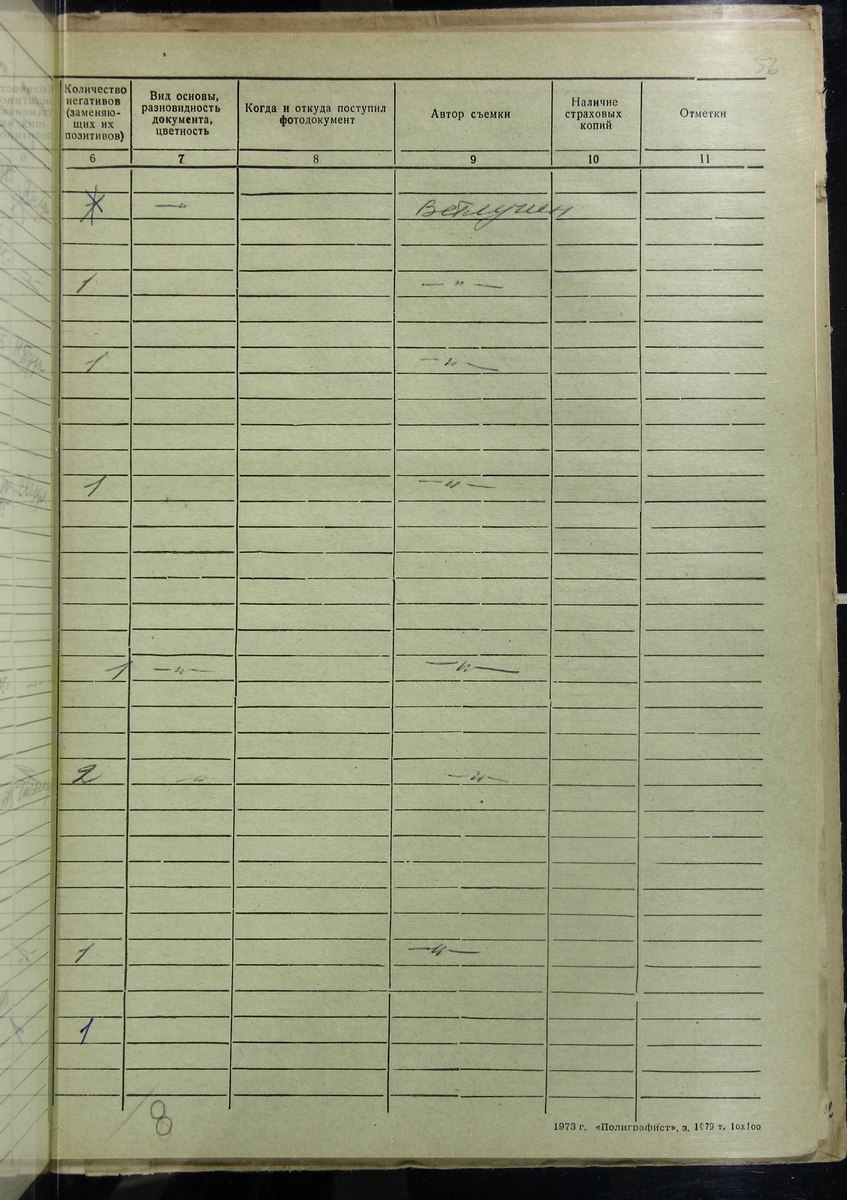 56
Количество негативов (заменяю- щих их позитивов)
Вид основы, разновидность документа, цветность
Когда и откуда поступил фотодокумент
Автор съемки
Наличие страховых копий
Отметки
6 7 8 9 10 11
—„ Ветлугин
1 —„—
1 —„—
1 —„—
1 —„— —„—
2 —„— —„—
1 —„—
1
8
1973 г. «Полиграфист», з. 1079 т. 10х100